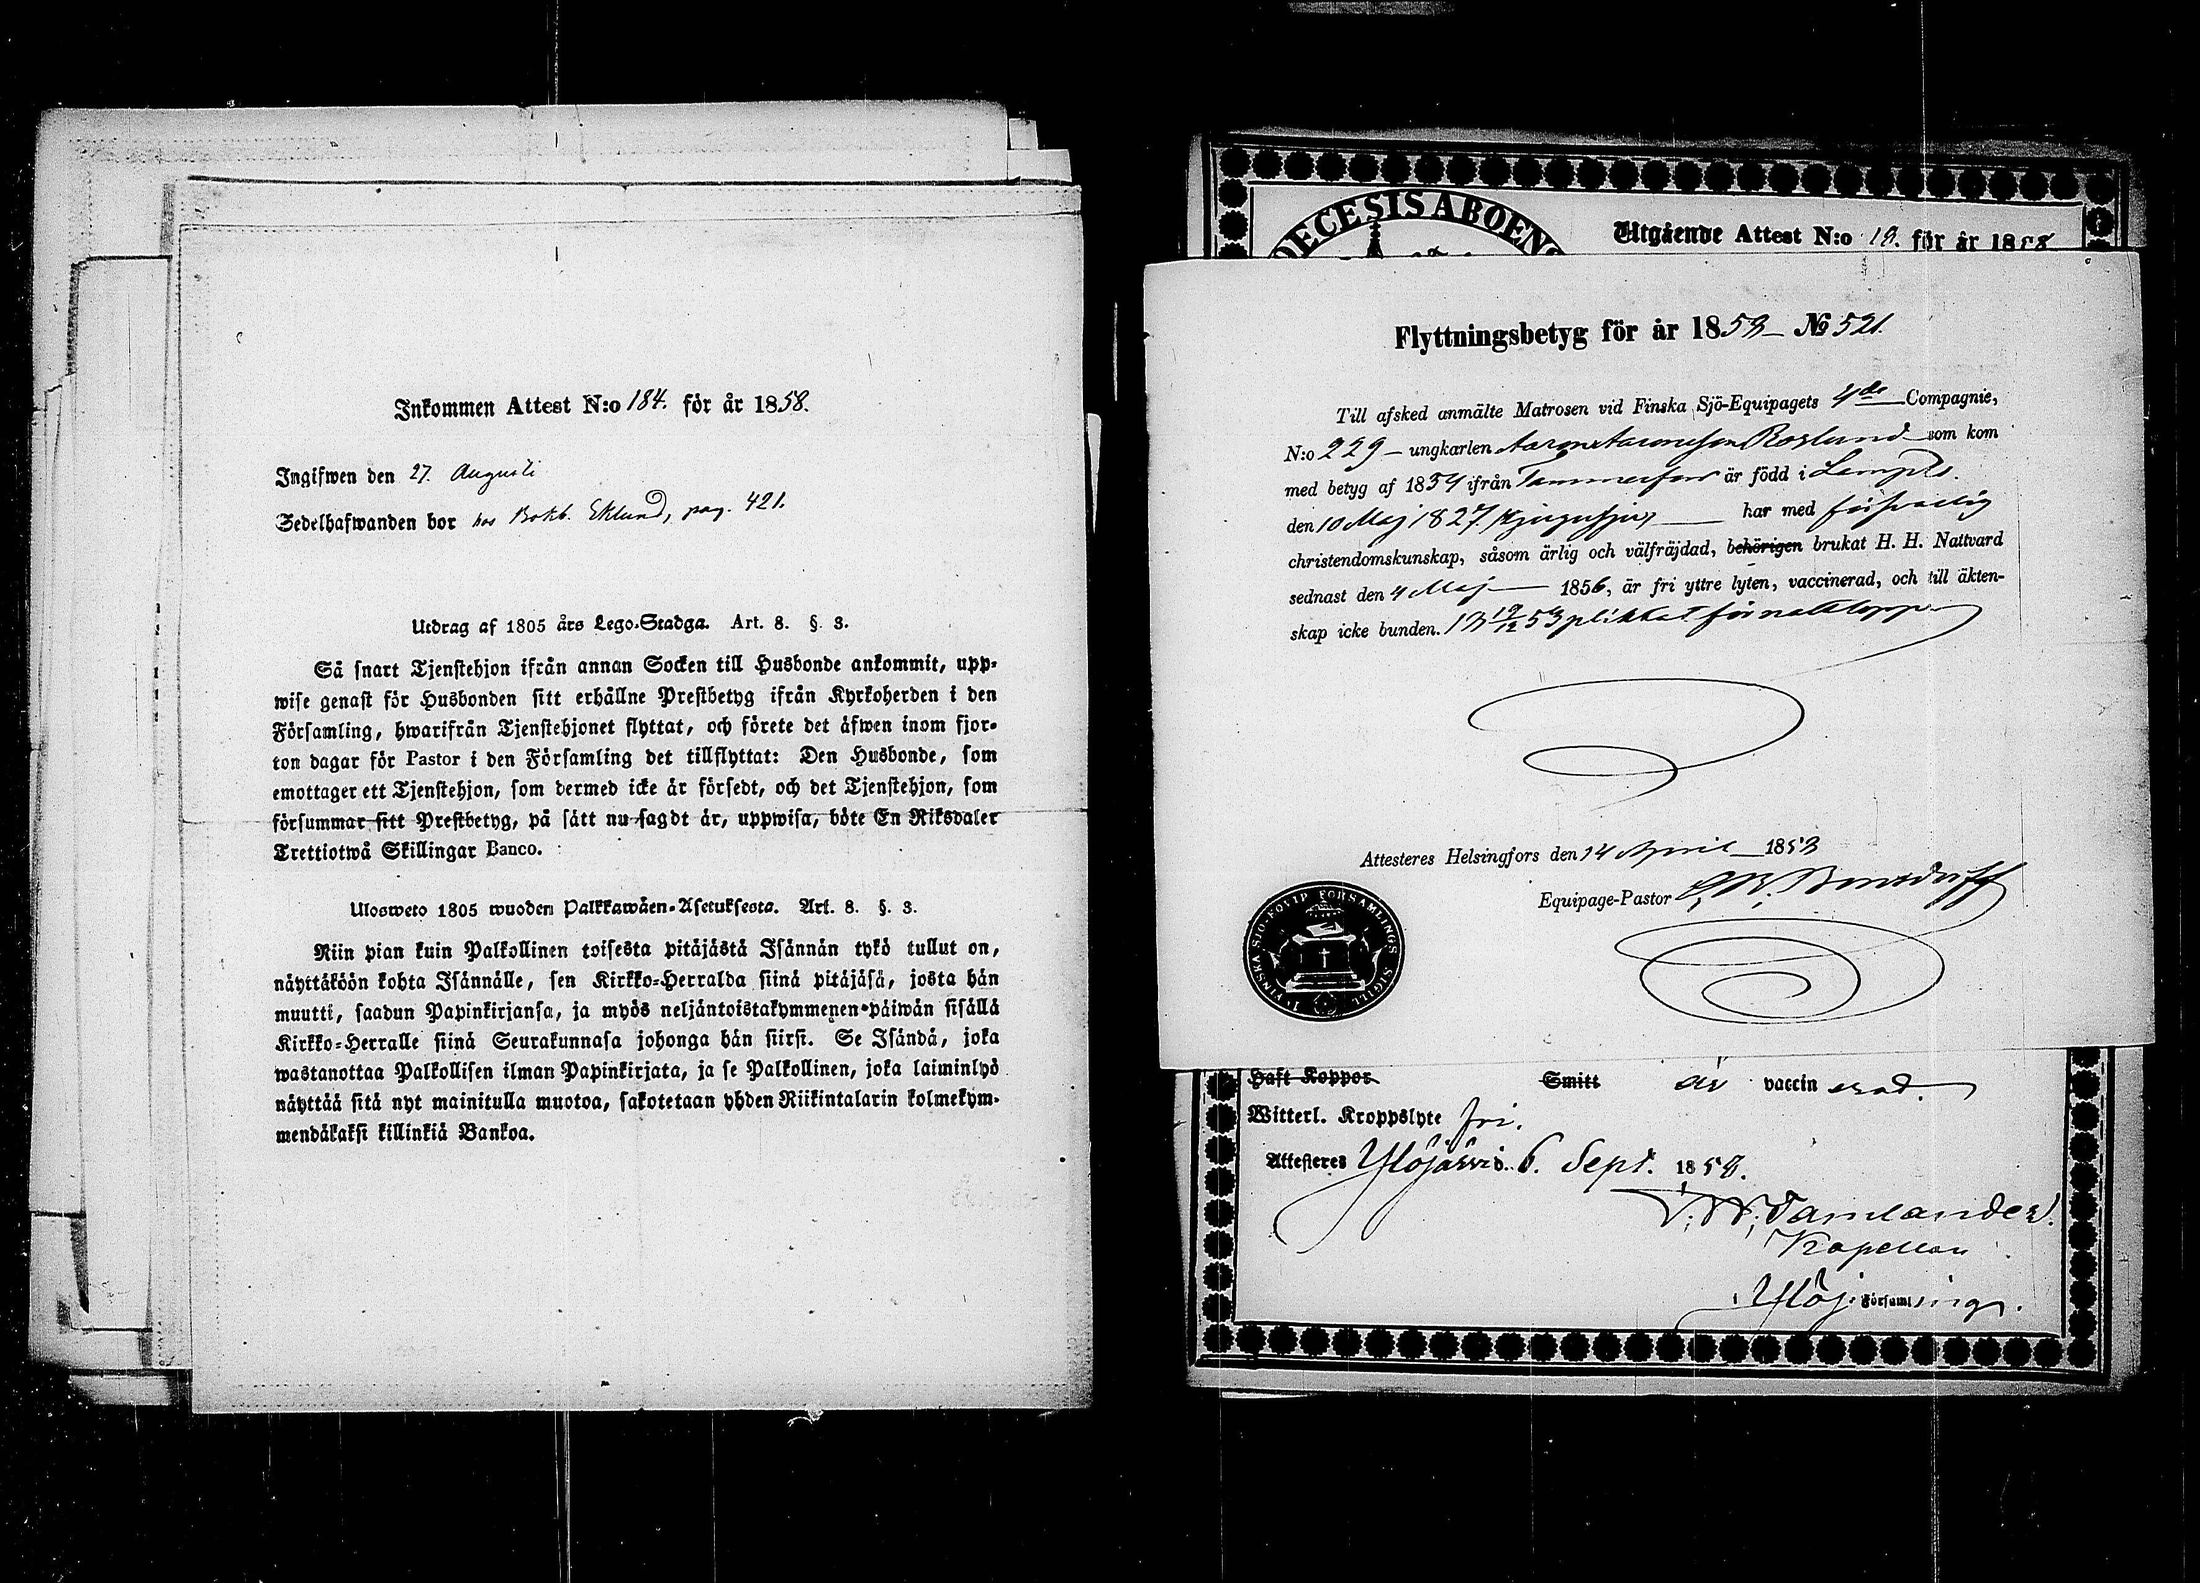 Inkommen Attest N:o 184. för år 1858.
Ingifwen den 27. Augusti
Sedelhafwanden bor hos Bokb. Eklund, pag. 421.
Utdrag af 1805 års Lego-Stadga. Art. 8. §. 3.
Så snart Tjenstehjon ifrån annan Socken till Husbonde ankommit, upp-
wise genast för Husbonden sitt erhållne Prestbetyg ifrån Kyrkoherden i den
Församling, hwarifrån Tjenstehjonet flyttat, och förete det äfwen inom fjor-
ton dagar för Pastor i den Församling det tillflyttat: Den Husbonde, som
emottager ett Tjenstehjon, som dermed icke är försedt, och det Tjenstehjon, som
försummar sitt Prestbetyg, på sätt nu sagdt är, uppwisa, böte En Riksdaler
Trettiotwå Skillingar Banco.
Ulosweto 1805 wuoden Palkkawäen-Asetuksesta. Art. 8. §. 3.
Niin pian kuin Palkollinen toisesta pitäjästä Isännän tykö tullut on,
näyttäköön kohta Isännälle, sen Kirkko-Herralda siinä pitäjäsä, josta hän
muutti, saadun Papinkirjansa, ja myös neljäntoistakymmenen päiwän sisällä
Kirkko-Herralle siinä Seurakunnasa johonga hän siirsi. Se Isändä, joka
wastanottaa Palkollisen ilman Papinkirjata, ja se Palkollinen, joka laiminlyö
näyttää sitä nyt mainitulla muotoa, sakotetaan yhden Riikintalarin kolmekym-
mendäkaksi killinkiä Bankoa.
DECESIS ABOENS
Utgående Attest N:o 19. för år 1858
Flyttningsbetyg för år 1858 — № 521.
Till afsked anmälte Matrosen vid Finska Sjö-Equipagets 4de Compagnie,
N:o 229 — ungkarlen Aaron Aaronsson Roslund som kom
med betyg af 1854 ifrån Tammerfors är född i Lempis.
den 10 Maj 1827, har med försvarlig
christendomskunskap, såsom ärlig och välfräjdad, behörigen brukat H. H. Nattvard
sednast den 4 Maj — 1856, är fri yttre lyten, vaccinerad, och till äkten-
skap icke bunden. plikkat för
Attesteres Helsingfors den 14 April 1858
Equipage-Pastor
I. FINSKA SJÖ-EQUIP. FÖRSAMLINGS SIGILL
Haft Koppor Smitt är vaccin erad.
Witterl. Kroppslyte fri.
Attesteres Ylöjärvi d. 6. Sept. 1858.
Kapellan
i Ylöj. Församling.